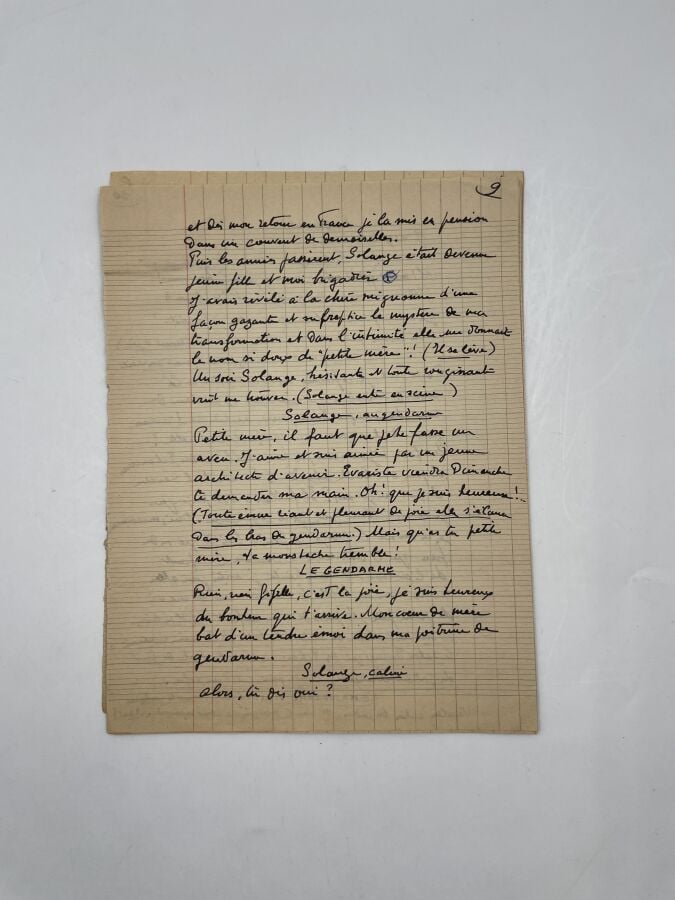 9
et dès mon retour en France je la mis en pension
dans un couvent de demoiselles.
Puis les années passèrent, Solange était devenue
jeune fille et moi brigadier
J'avais révélé à la chère mignonne d'une
façon gazante et the mystère de ma
transformation et dans l'intimité elle me donnait
le nom si doux de "petite mère"! (Il se lève)
Un soir Solange, hésitante et toute rougissante
vint me trouver. (Solange entre en scène)
Solange, au gendarme
Petite mère, il faut que je te fasse un
aveu. J'aime et suis aimée par un jeune
architecte d'avenir. Evariste viendra Dimanche
te demander ma main. Oh! que je suis heureuse!..
(Toute émue riant et pleurant de joie elle s'élance
dans les bras du gendarme.) Mais qu'as tu petite
mère, ta moustache tremble!
LE GENDARME
Rien, rien fifille, c'est la joie, je suis heureux
du bonheur qui t'arrive. Mon coeur de mère
bat d'un tendre émoi dans ma poitrine de
gendarme.
Solange, caline
Alors, tu dis oui?